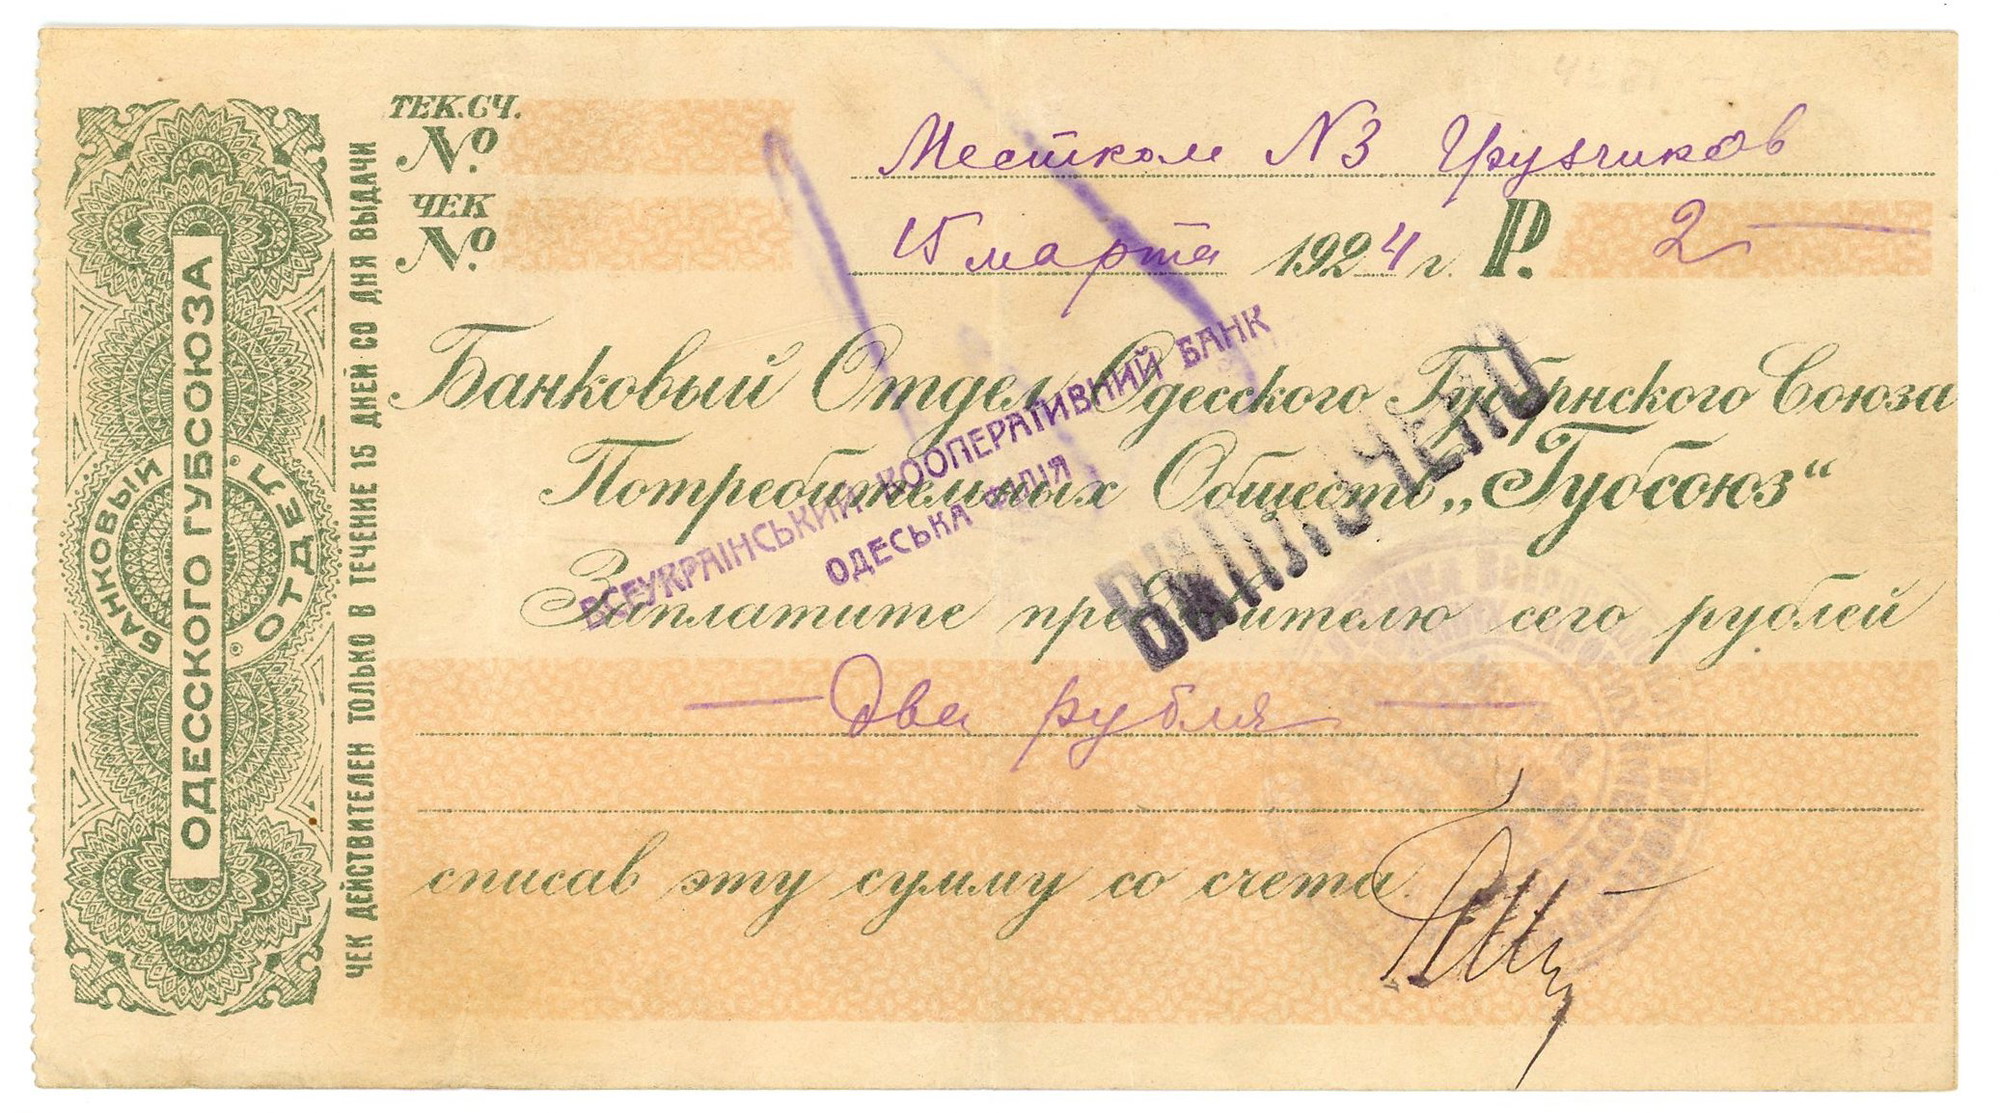 БАНКОВЫЙ ОТДЕЛ
ОДЕССКОГО ГУБСОЮЗА
ЧЕК ДЕЙСТВИТЕЛЕН ТОЛЬКО В ТЕЧЕНИЕ 15 ДНЕЙ СО ДНЯ ВЫДАЧИ
ТЕК. СЧ.
№
ЧЕК
№
Местком N3 Грузчиков
15 марта 1924 г. Р. 2
Банковый Отдел Одесского Губернского Союза
Потребительных Обществ „Губсоюз“
ВСЕУКРАЇНСЬКИЙ КООПЕРАТИВНИЙ БАНК
ОДЕСЬКА ФІЛІЯ
ВИПЛАЧЕНО
Заплатите предъявителю сего рублей
— Два рубля —
списав эту сумму со счета.